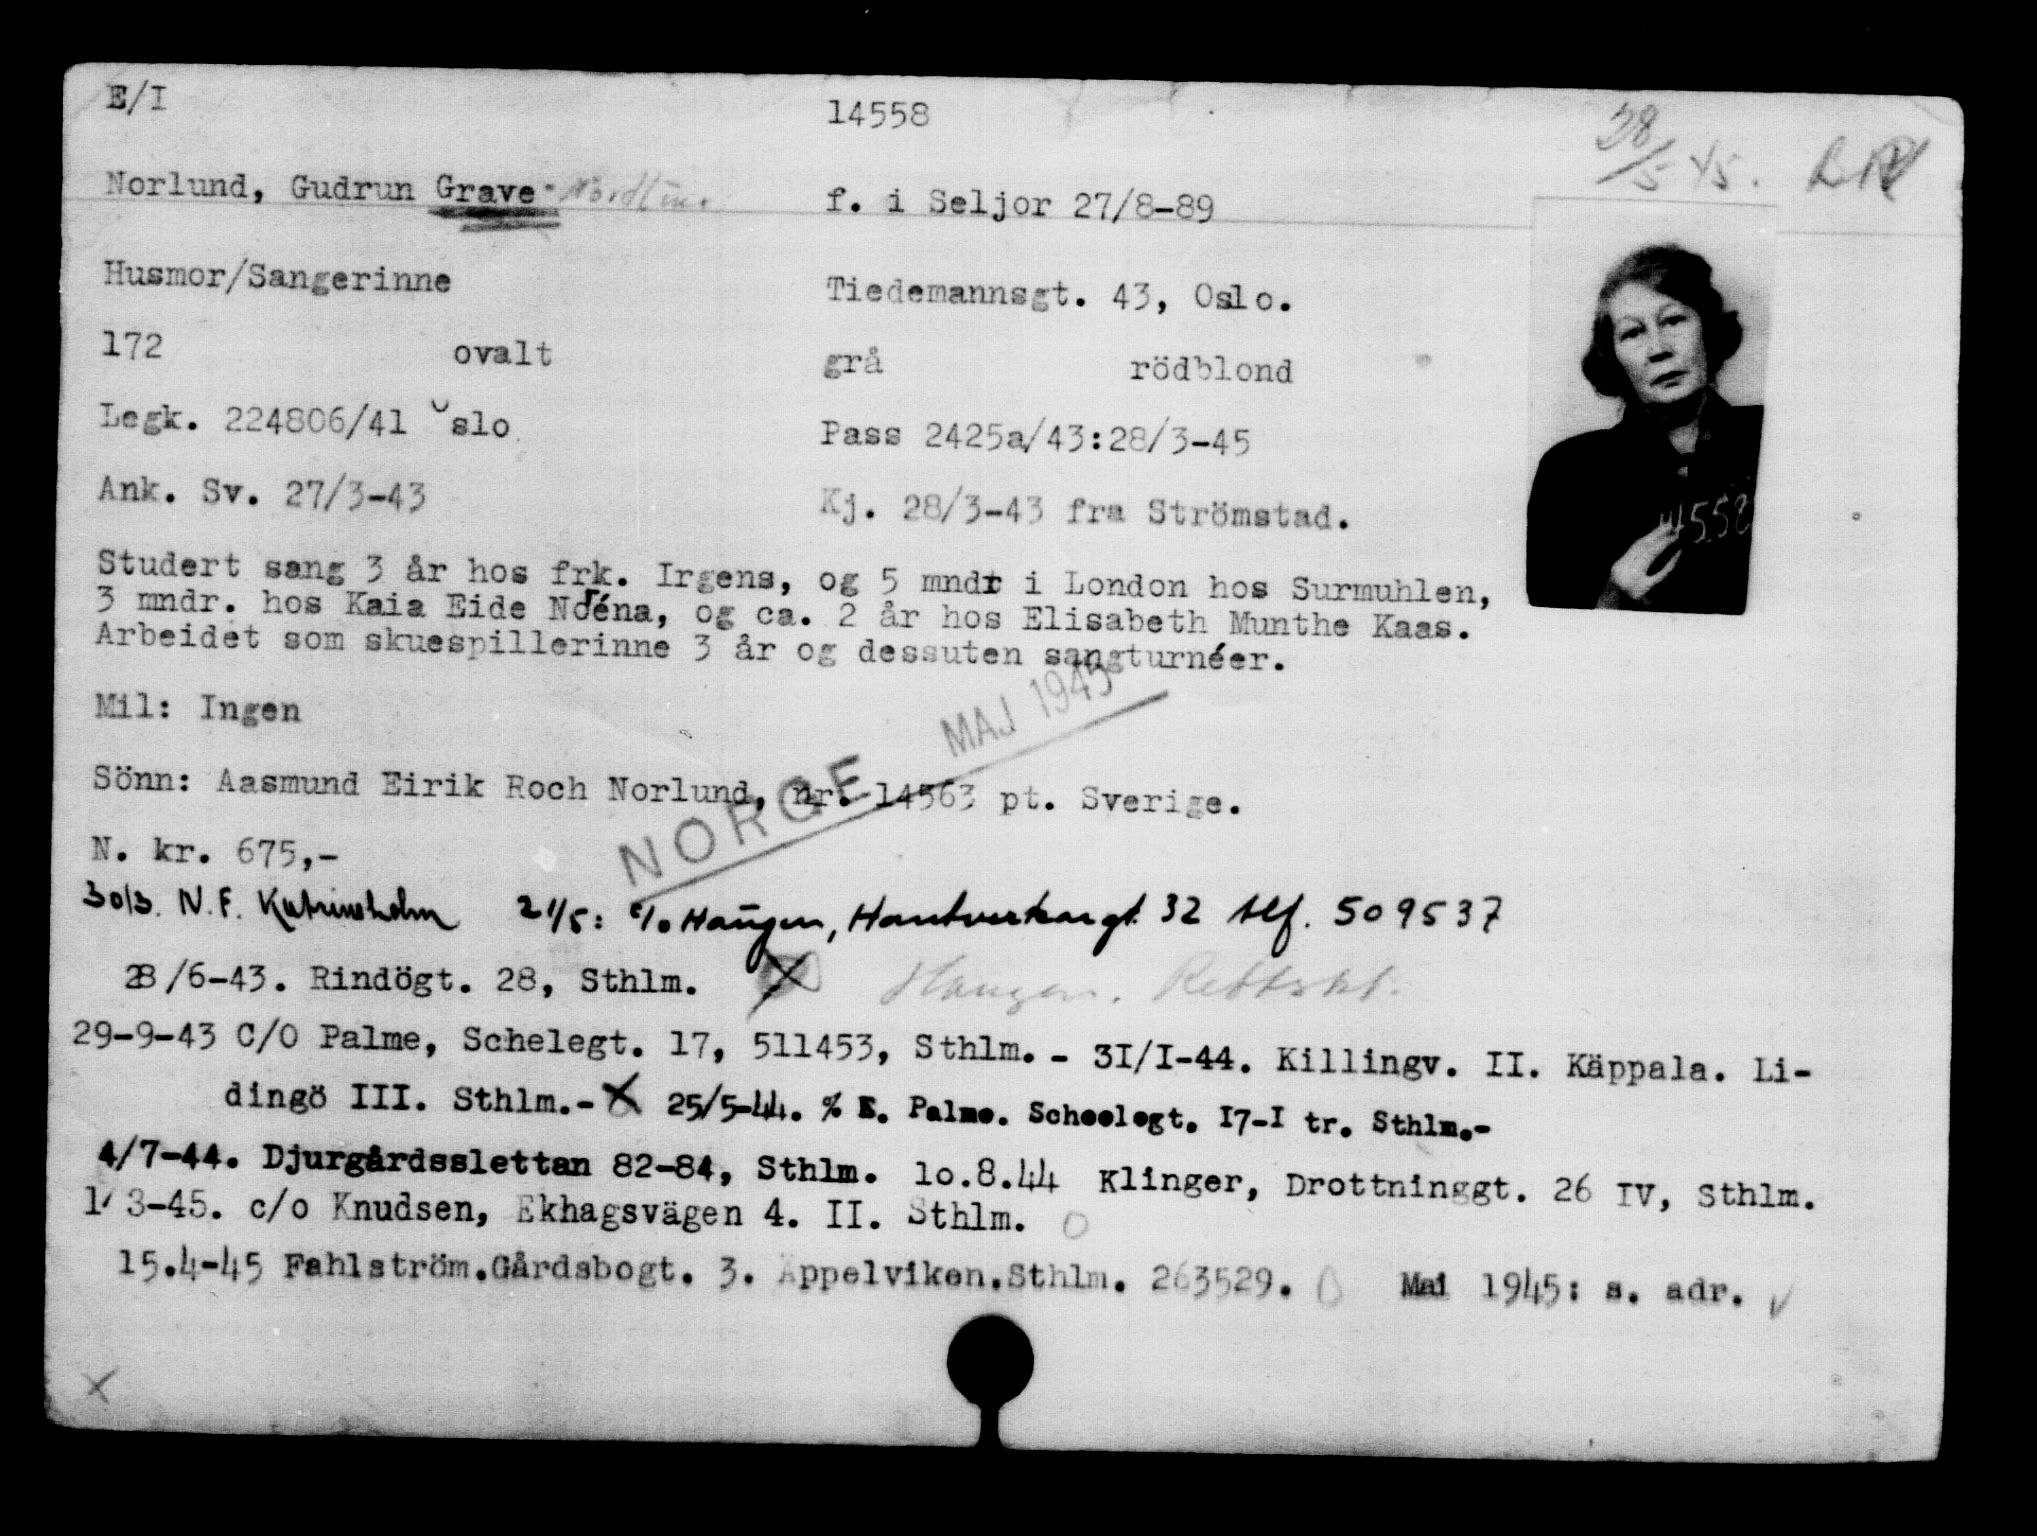 E/I 14558 28/5 45.
Norlund, Gudrun Grave- f. i Seljor 27/8-89
Husmor/Sangerinne Tiedemannsgt. 43, Oslo.
172 ovalt grå rödblond
Legk. 224806/41 Oslo Pass 2425a/43:28/3-45
Ank. Sv. 27/3-43 Kj. 28/3-43 fra Strömstad.
14558
Studert sang 3 år hos frk. Irgens, og 5 mndr i London hos Surmuhlen,
3 mndr. hos Kaia Eide Noréna, og ca. 2 år hos Elisabeth Munthe Kaas.
Arbeidet som skuespillerinne 3 år og dessuten sangturnéer.
Mil: Ingen
NORGE MAJ 1945
Sönn: Aasmund Eirik Roch Norlund, nr. 14563 pt. Sverige.
N. kr. 675,-
30/3. N.F. Katrineholm 21/5: c/o Haugen, Hantverkargt. 32 tlf. 509537
28/6-43. Rindögt. 28, Sthlm. Haugen. Rettskt.
29-9-43 C/O Palme, Schelegt. 17, 511453, Sthlm. - 3I/I-44. Killingv. II. Käppala. Li-
dingö III. Sthlm.- 25/5-44. % E. Palme. Scheelegt. I7-I tr. Sthlm.-
4/7-44. Djurgårdsslettan 82-84, Sthlm. 10.8.44 Klinger, Drottninggt. 26 IV, Sthlm.
1/3-45. c/o Knudsen, Ekhagsvägen 4. II. Sthlm.
15.4-45 Fahlström.Gårdsbogt. 3. Äppelviken.Sthlm. 263529. Mai 1945: s. adr.